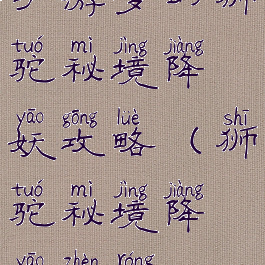 tuó mì jìng jiàng
驼秘境降
yāo gōng lüè shī
妖攻略（狮
tuó mì jìng jiàng
驼秘境降
yāo zhèn róng